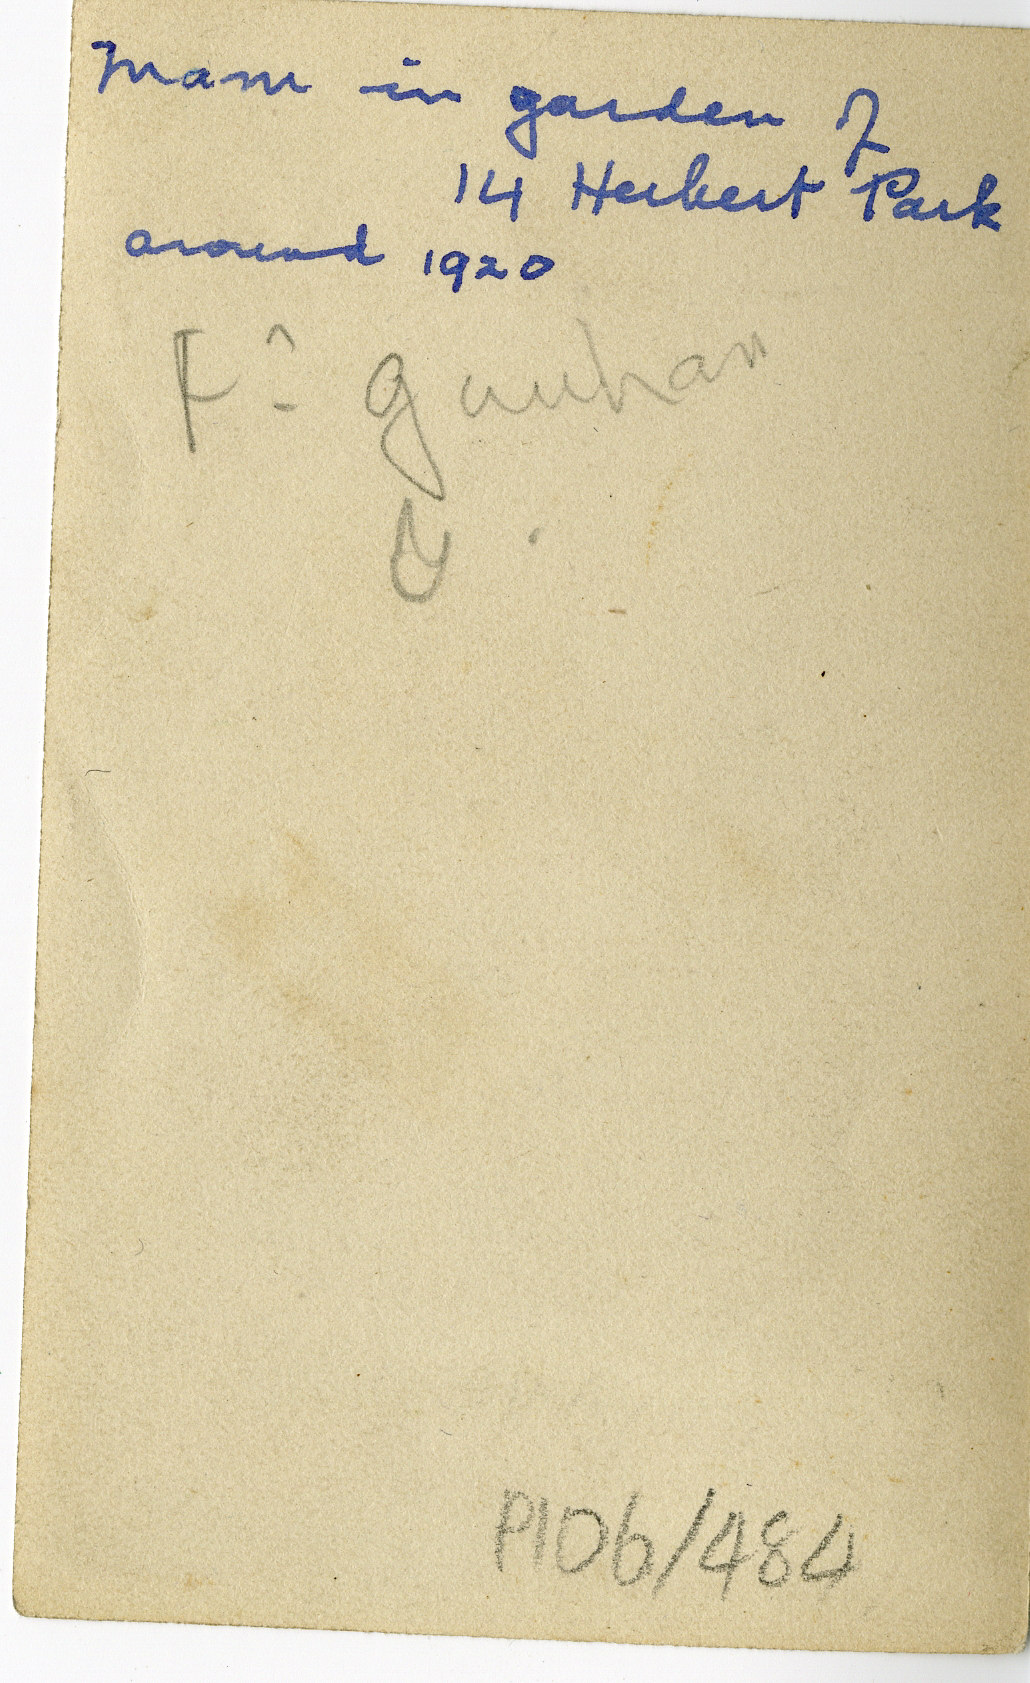 Mam in garden of
14 Herbert Park
around 1920
P106/484